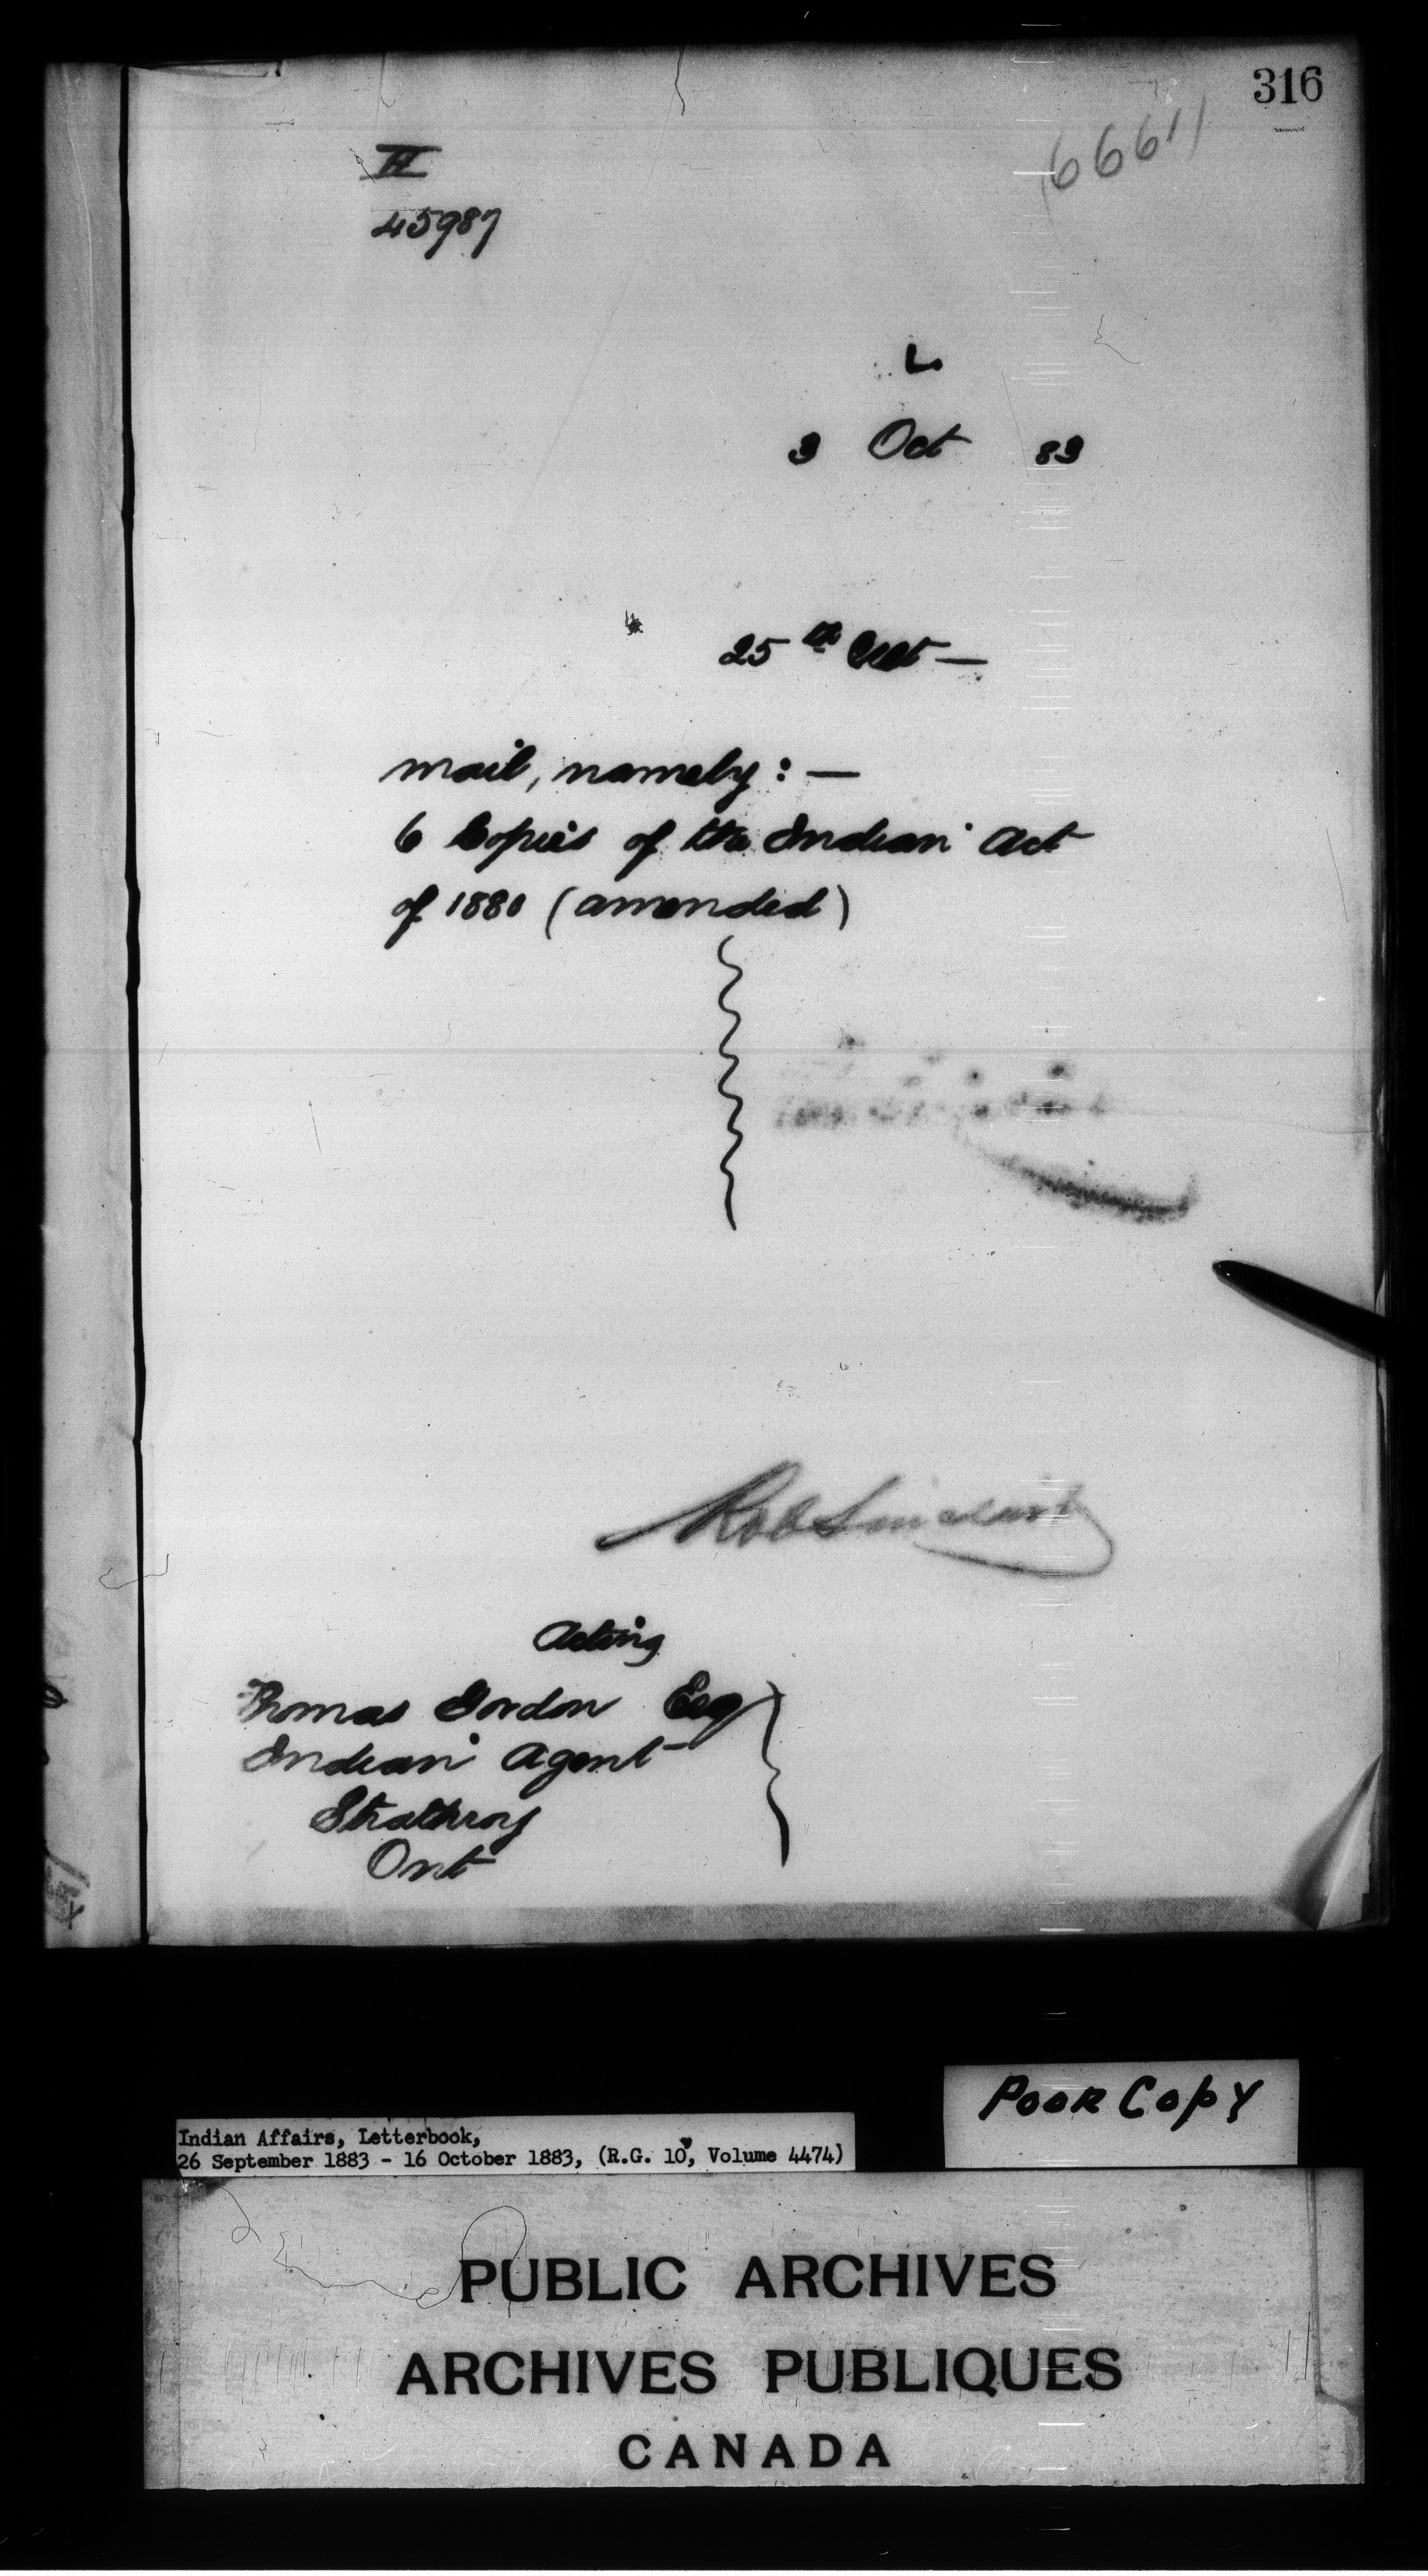 316
6661
II
45987
L
3 Oct 83
25th Ult —
mail, namely: —
6 Copies of the Indian Act
of 1880 (amended)
Rob Sinclair
Acting
Thomas Gordon Esq
Indian Agent
Strathroy
Ont
Poor Copy
Indian Affairs, Letterbook,
26 September 1883 - 16 October 1883, (R.G. 10, Volume 4474)
PUBLIC ARCHIVES
ARCHIVES PUBLIQUES
CANADA